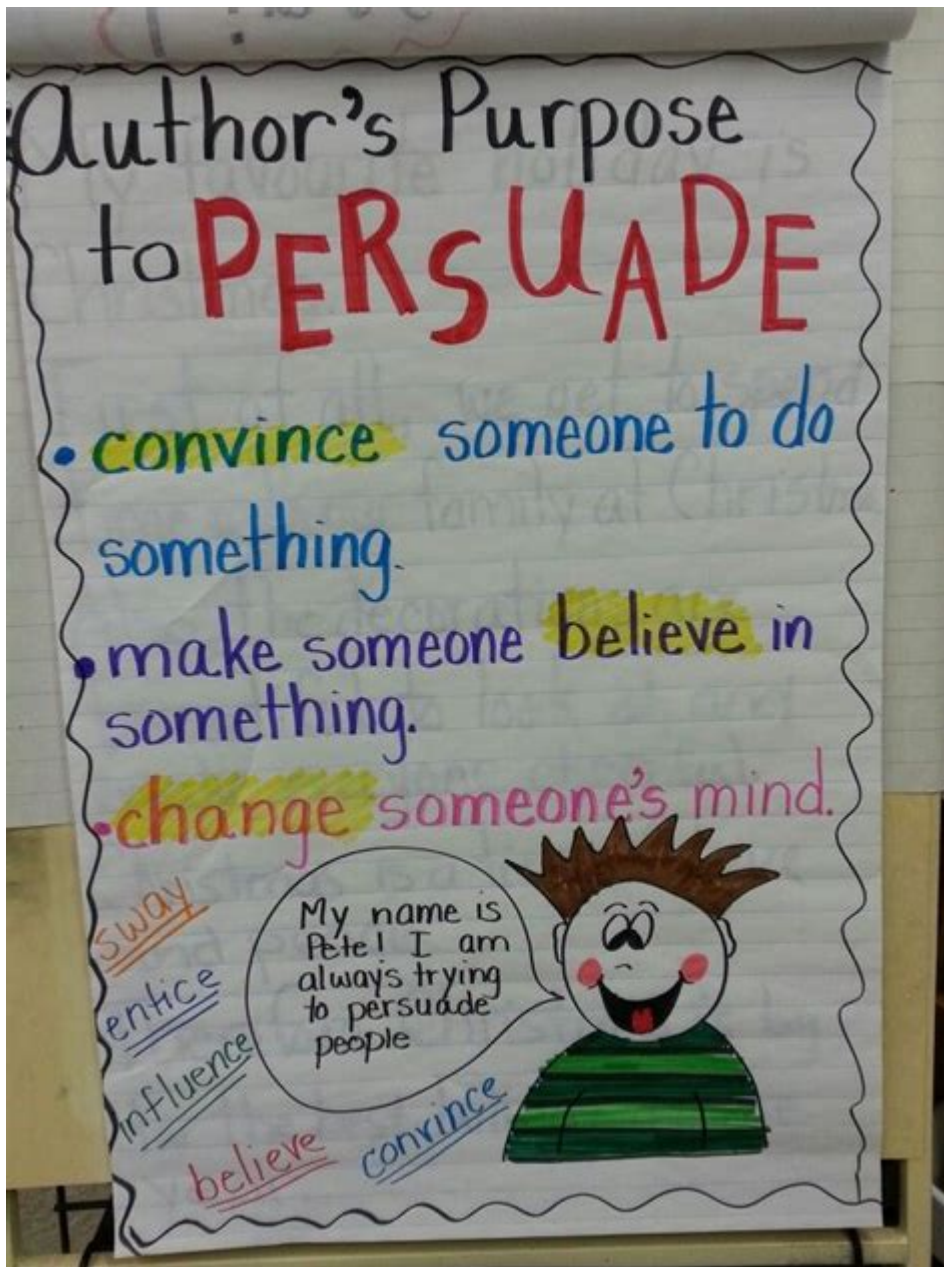 Author's Purpose
to PERSUADE
• convince someone to do
something.
• make someone believe in
something.
• change someone's mind.
sway
entice
influence
believe
convince
My name is
Pete! I am
always trying
to persuade
people